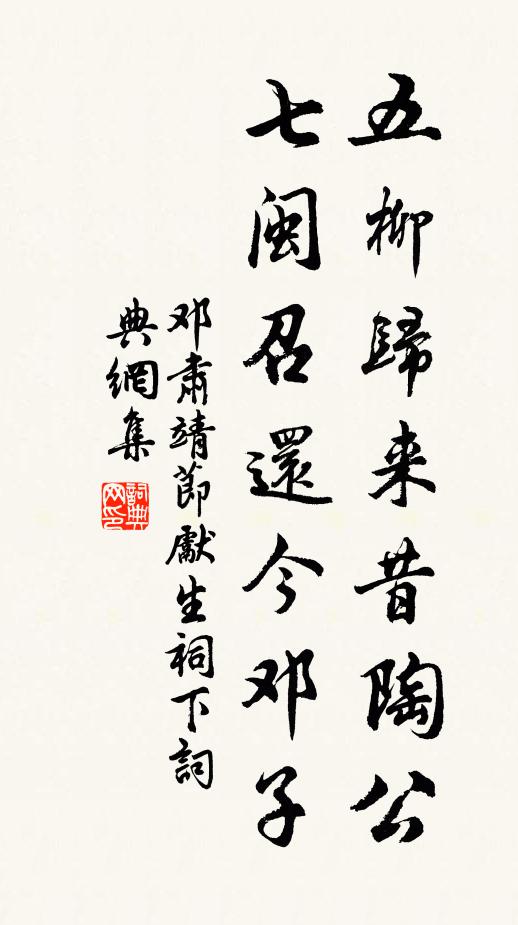 五柳歸来昔陶公
七閩召還今邓子
邓肅靖節獻生祠下詞
典網集
詞典网印